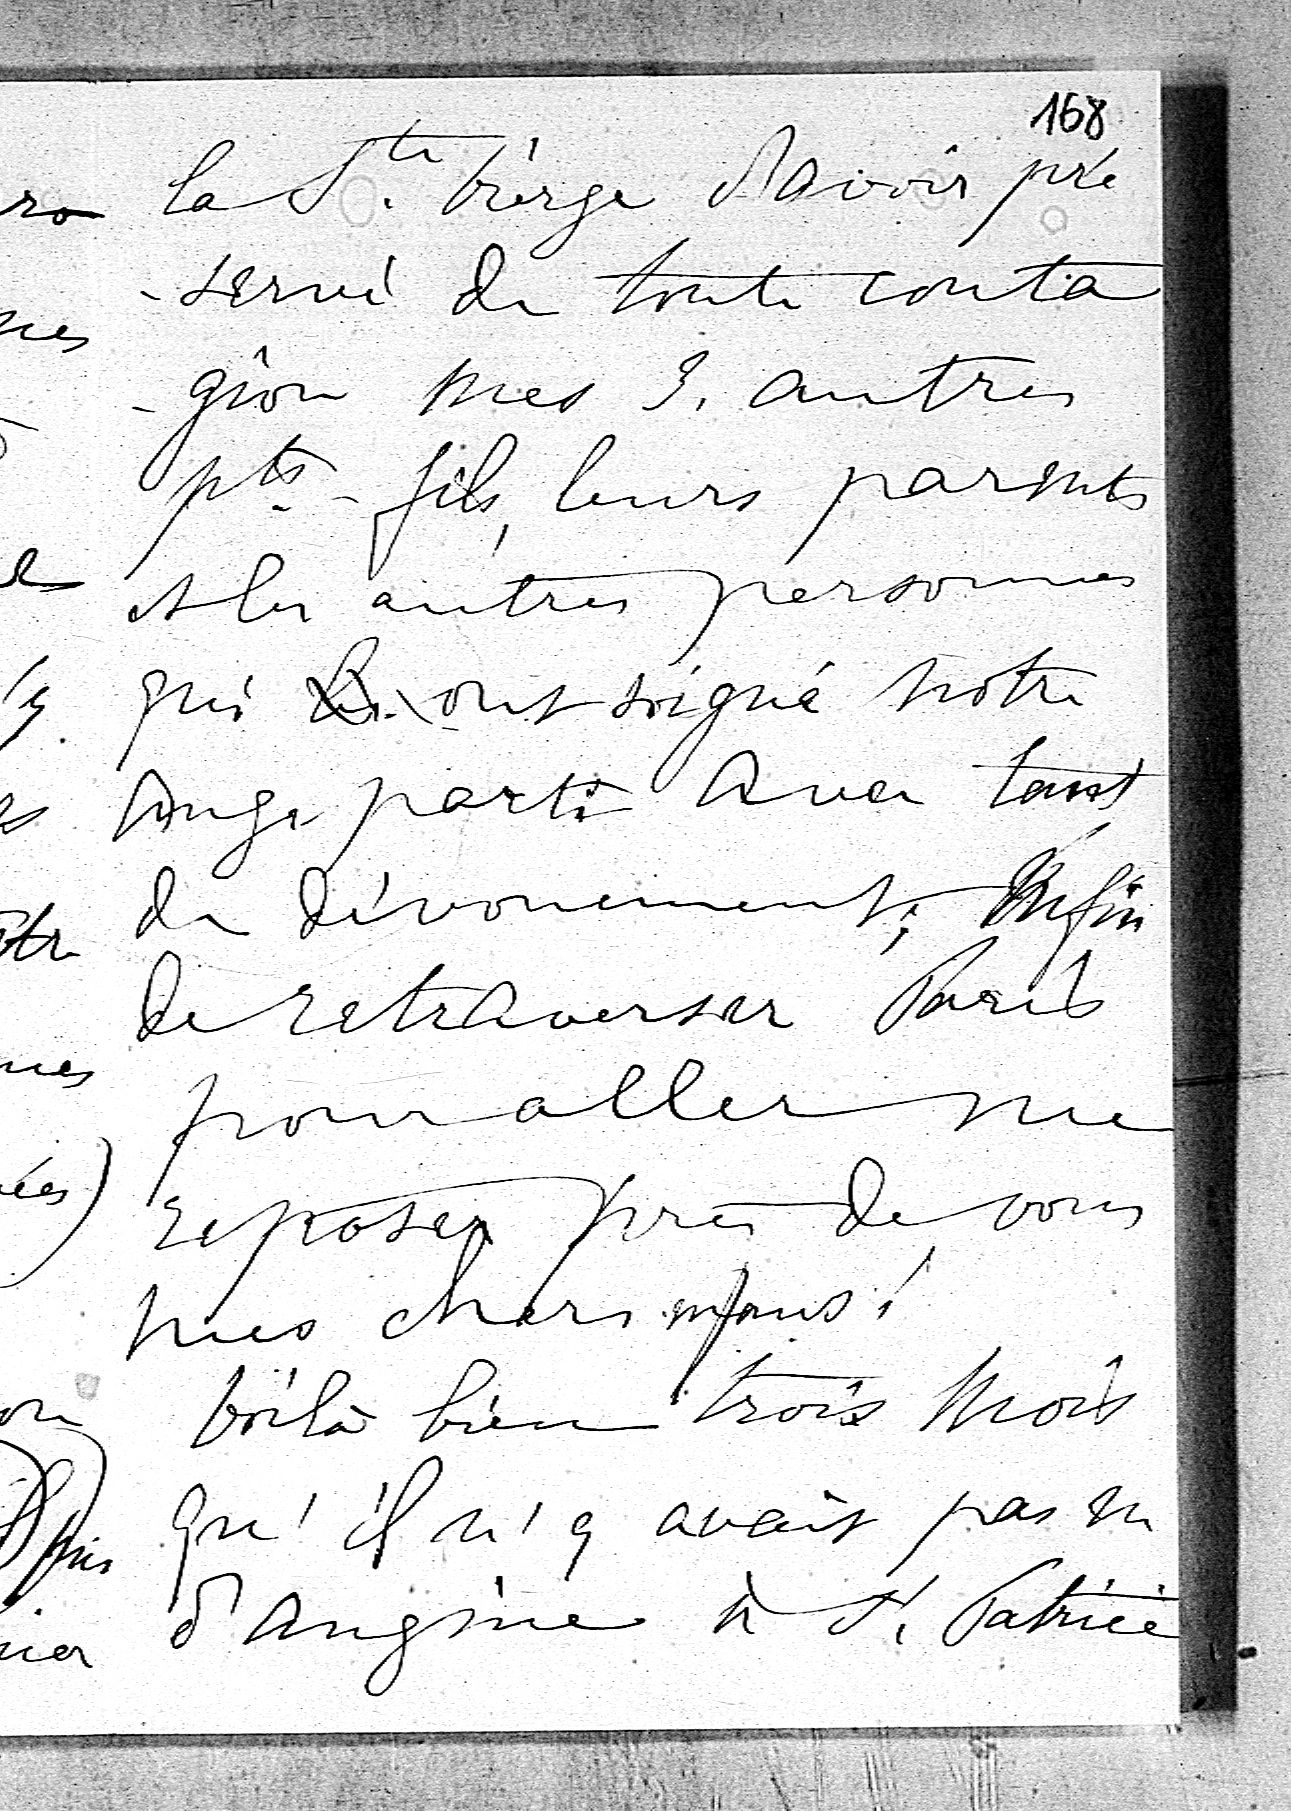 168
la Ste Vierge d'avoir pré
-servé de toute conta
-gion mes 3. autres
pts-fils, leurs parents
et les autres personnes
qui ont soigné notre
Ange parti avec tant
de dévouement; Enfin
de retraverser Paris
pour aller me
reposer près de vous
mes chers enfans!
Voilà bien trois mois
qu'il n'y avait pas eu
d'angine à St. Patrice